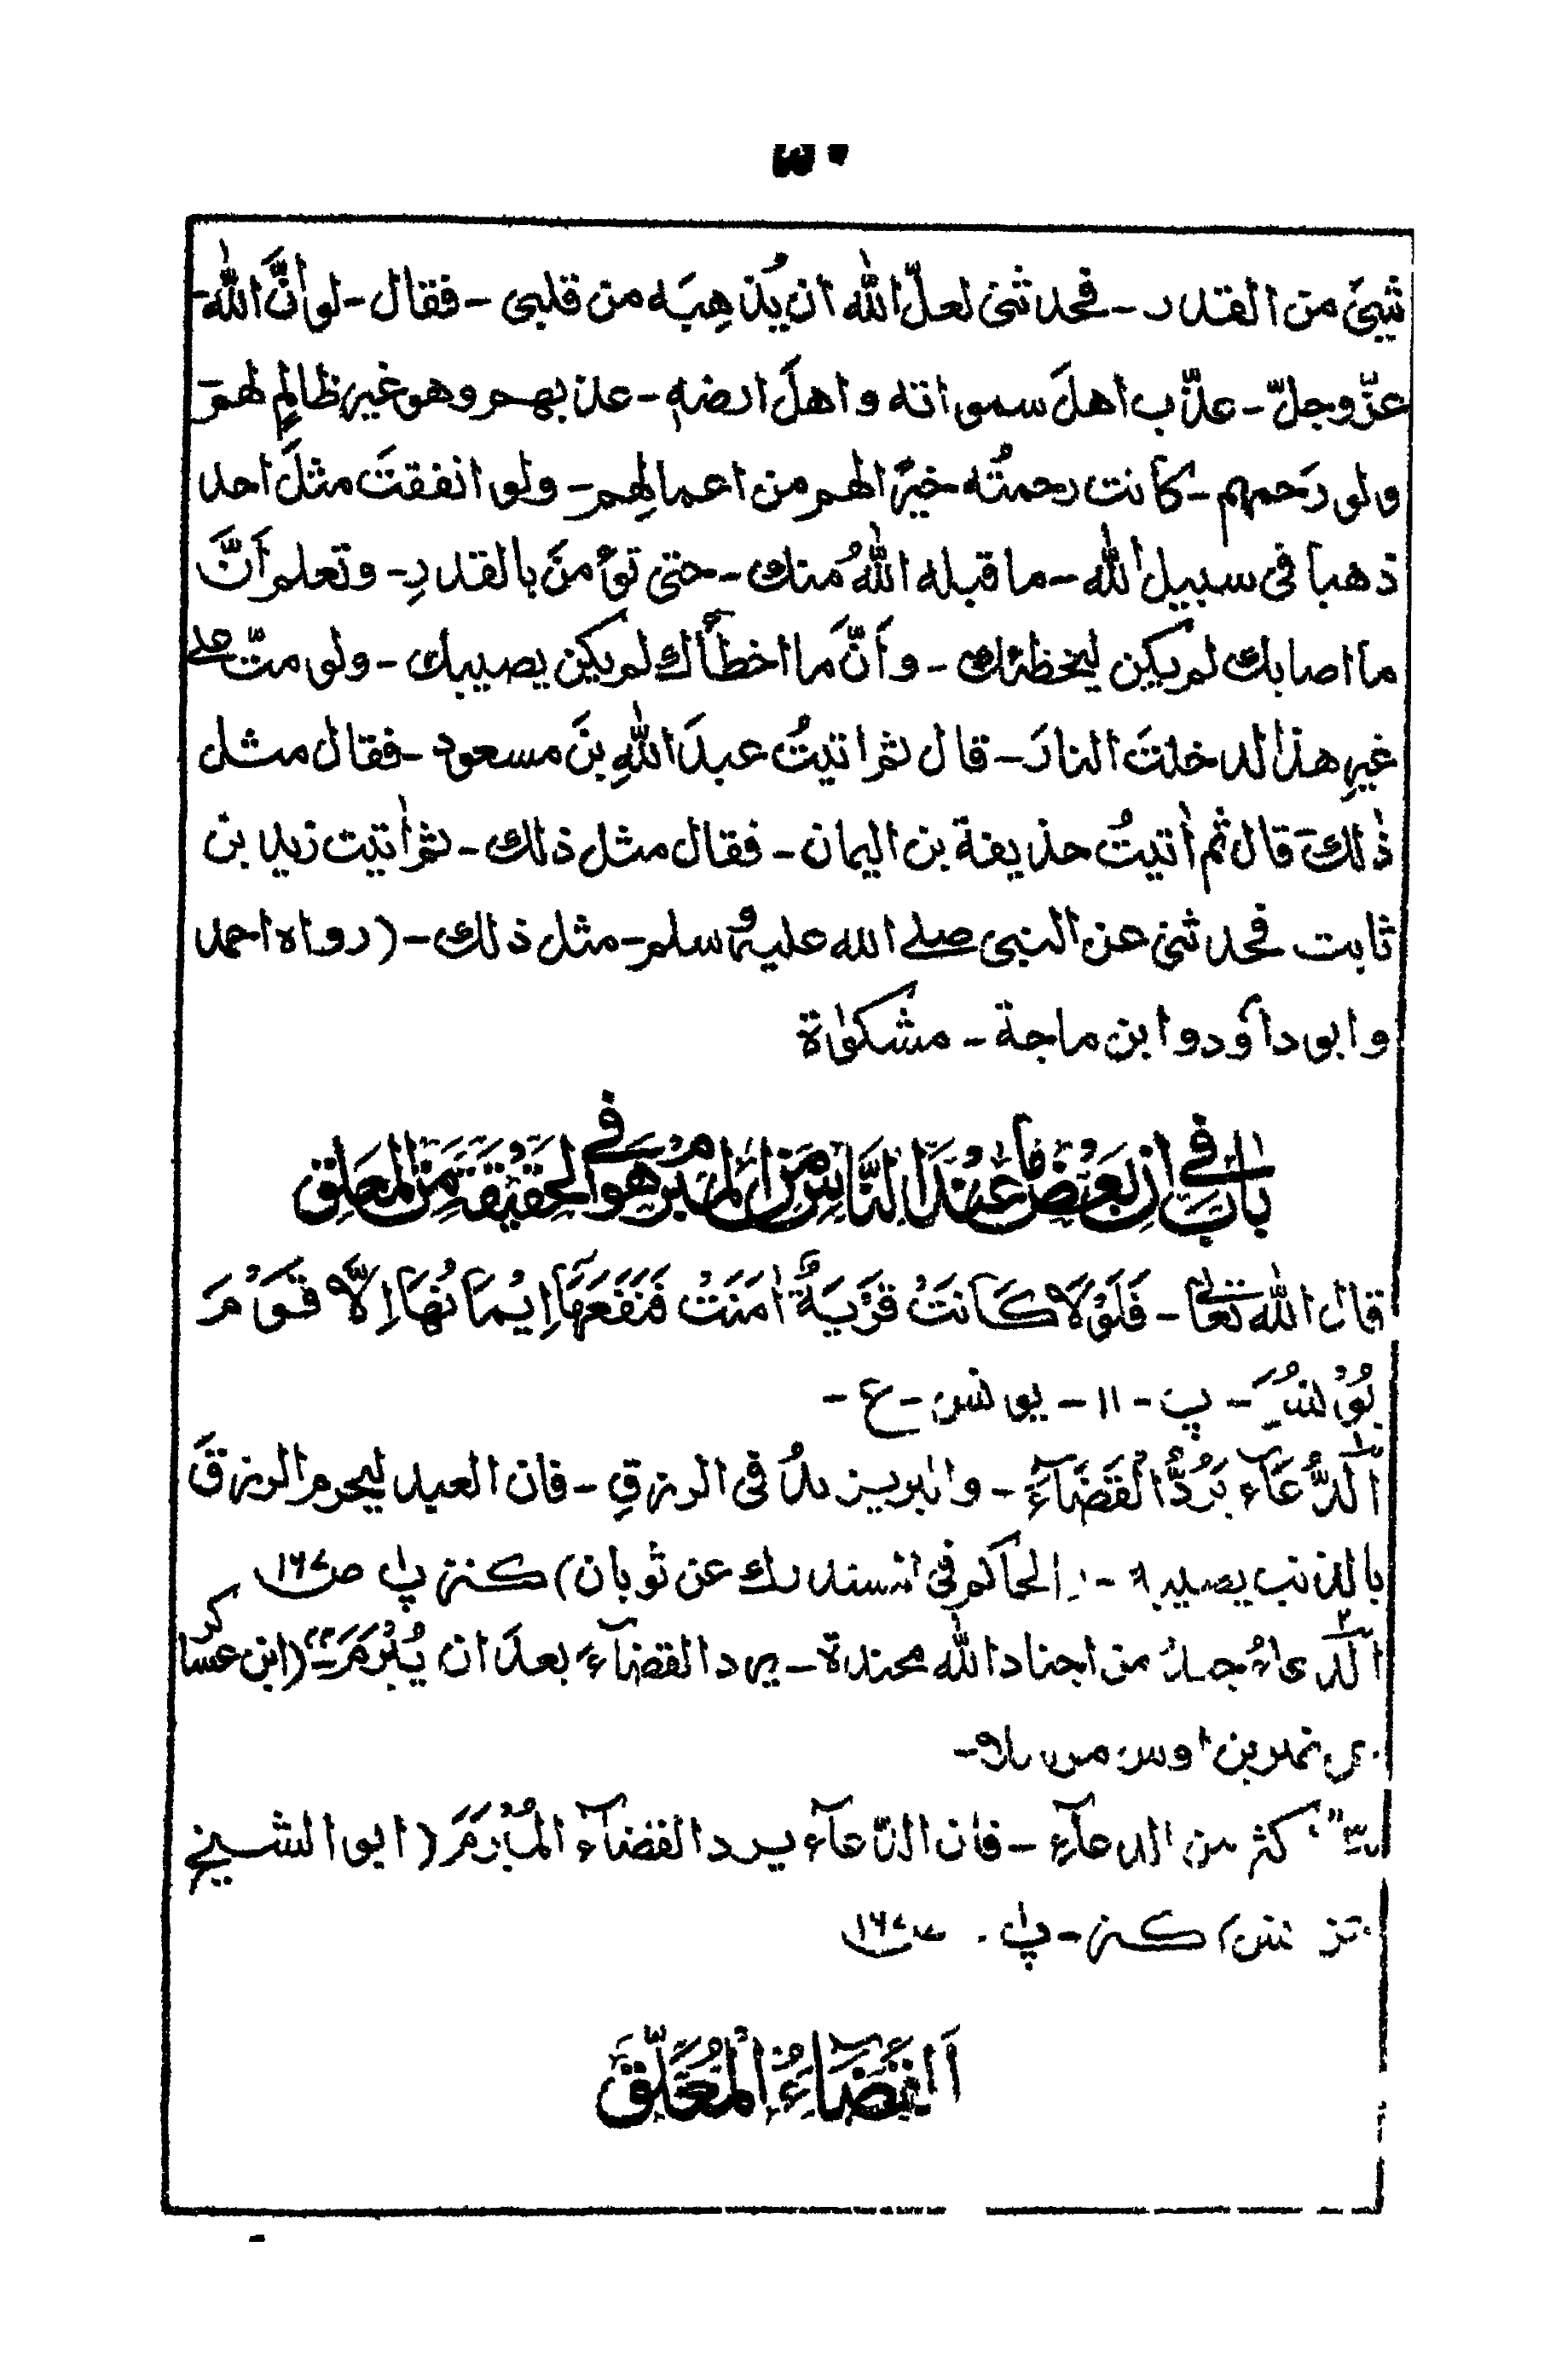 شیئ من القدر - فحدثنی لعلّ الله ان یُذهِبَه من قلبی - فقال - لو انَّ الله -
عزّ وجلّ - عذّب اهلَ سمواته و اهلَ ارضهٖ - عذبهم وهو غیر ظالمٍ لهم -
ولو رَحمهم - کانت رحمتُه خیرًا لهم من اعمالِهم - ولو انفقتَ مثلَ احد
ذهبا فی سبیل الله - ما قبله اللهُ منك - حتی تؤمنَ بالقدرِ - وتعلم اَنَّ
ما اصابك لم یکن لیخطئك - و اَنَّ ما اخطأك لم یکن یصیبك - ولو متّ علے
غیرِ هذا لدخلتَ النارَ - قال ثم اتیتُ عبدَ اللهِ بنَ مسعود - فقال مثل
ذٰلكَ قال ثم اتیتُ حذیفة بن الیمان - فقال مثل ذلك - ثم اتیت زید بن
ثابت فحدثنی عن النبی صلے الله علیه وسلم - مثل ذلك - (رواه احمد
وابو داؤد وابن ماجة - مشکوٰة
بابٌ فی ان بَعْضَ مَا عِنْدَ النَّاسِ مِنَ المُبرم هو فی الحَقِیْقَةِ مِنَ المعَلق
قال الله تعالیٰ - فَلَوْلَا کَانَتْ قَرْیَةٌ اٰمَنَتْ فَنَفَعَهَا اِیْمَانُهَا اِلَّا قَوْمَ
یُوْنُسَ - پ - ۱۱ - یونس - ع -
اَلدُّعَآءُ یَرُدُّ الْقَضَآءَ - والبر یزیدُ فی الرزقِ - فان العبد لیحرم الرزقَ
بالذنب یصیبه - (الحاکم فی المستدرك عن ثوبان) کنز پ۱ ص۱۶۷
الدعاءُ جندٌ من اجناد الله مجندة - یرد القضاءَ بعدَ ان یُبْرَمَ - (ابن عساکر
نمیر بن اوس مرسلا -
اکثر من الدعآء - فان الدّعآء یرد القضآءَ المُبْرَمَ (ابو الشیخ
کنز - پ۱ - ۱۶۷
اَلقَضَآءُ الْمُعَلَّقُ